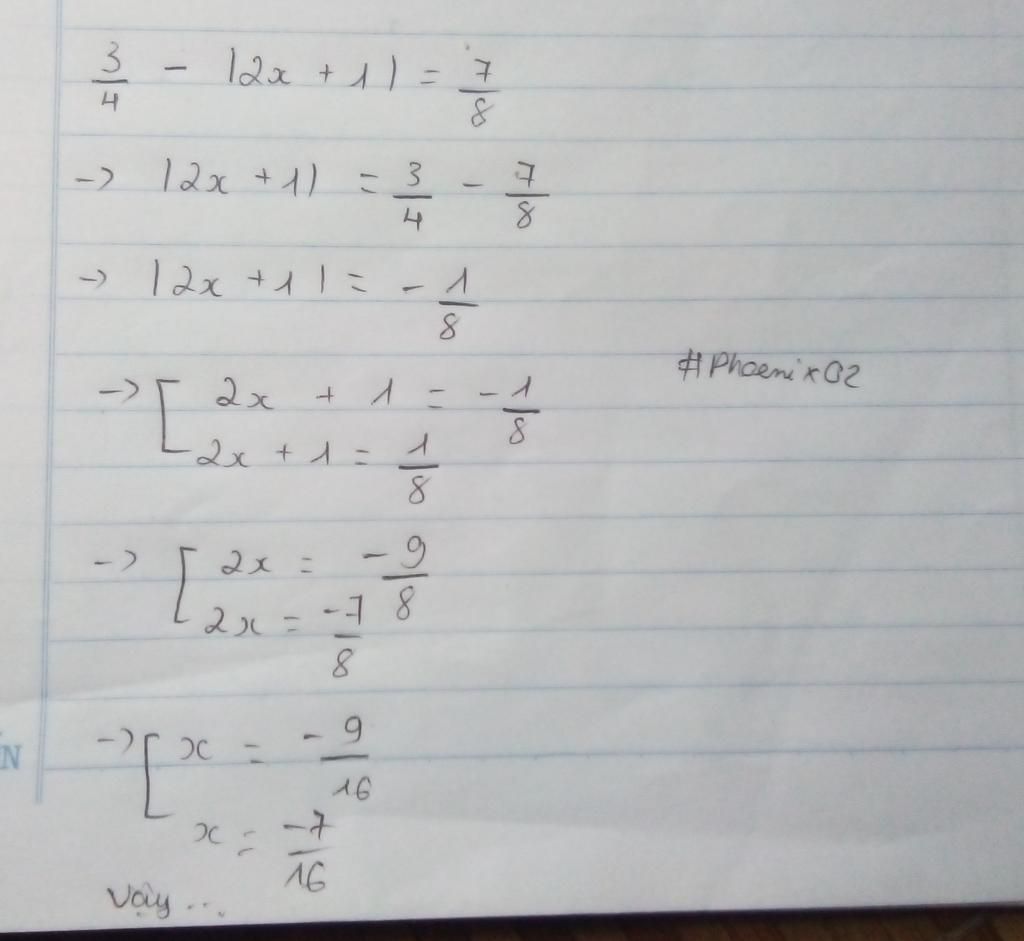 3/4 - |2x + 1| = 7/8
-> |2x + 1| = 3/4 - 7/8
-> |2x + 1| = - 1/8
-> [ 2x + 1 = - 1/8
2x + 1 = 1/8
#Phoenix02
-> [ 2x = - 9/8
2x = -7/8
-> [ x = - 9/16
x = -7/16
Vậy ...